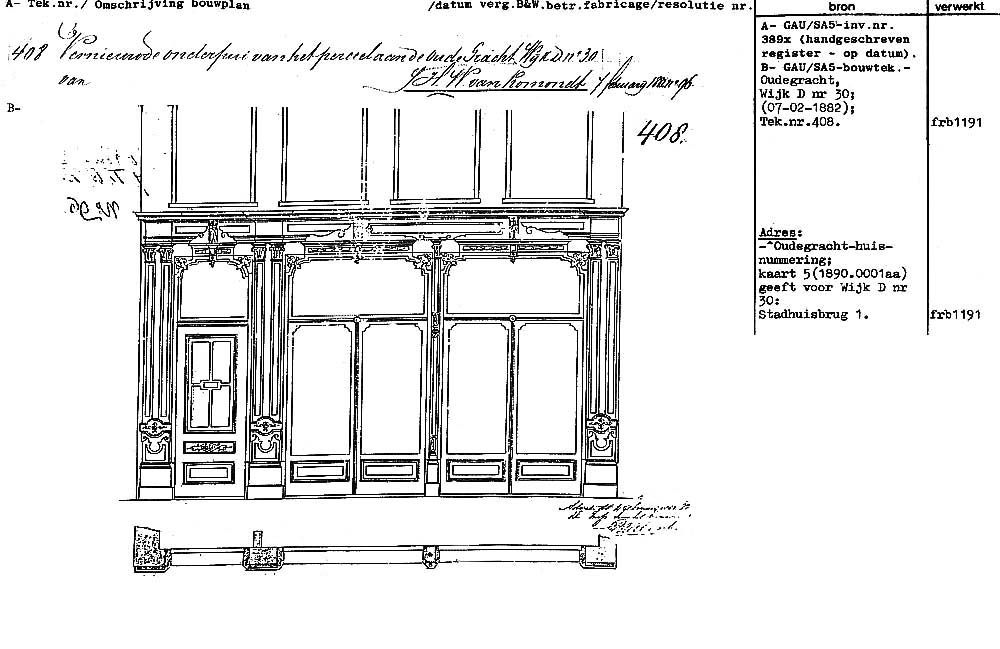 A- Tek.nr./ Omschrijving bouwplan /datum verg.B&W.betr.fabricage/resolutie nr.
bron
verwerkt
408 Vernieuwde onderpui van het perceel aan de Oude Gracht Wijk D no 30
van J H W van Romondt 7 februarij 1882 no 96
B-
408.
No 96.
A- GAU/SA5-inv.nr.
389x (handgeschreven
register - op datum).
B- GAU/SA5-bouwtek.-
Oudegracht,
Wijk D nr 30;
(07-02-1882);
Tek.nr.408.
frb1191
Adres:
-^Oudegracht-huis-
nummering;
kaart 5(1890.0001aa)
geeft voor Wijk D nr
30:
Stadhuisbrug 1.
frb1191